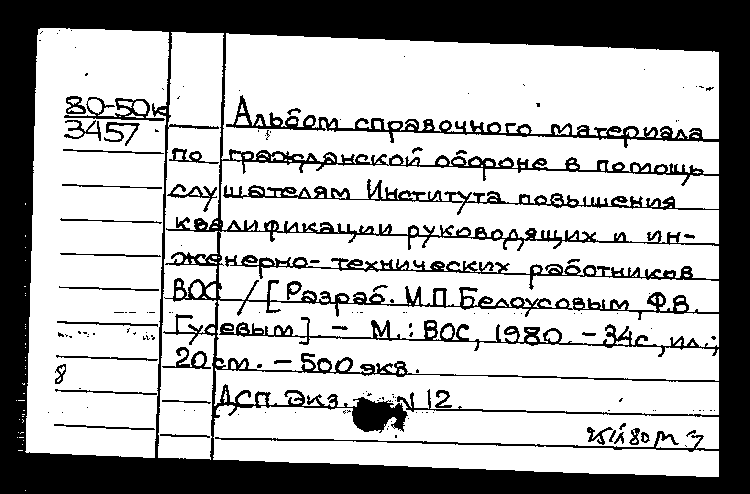 80-50к
3457
Альбом справочного материала
по гражданской обороне в помощь
слушателям Института повышения
квалификации руководящих и ин-
женерно-технических работников
ВОС / [Разраб. М.П.Белоусовым, Ф.В.
Гусевым] - М.: ВОС, 1980. - 34с., ил.;
20 см. - 500 экз.
ДСП. Экз. N 12.
8